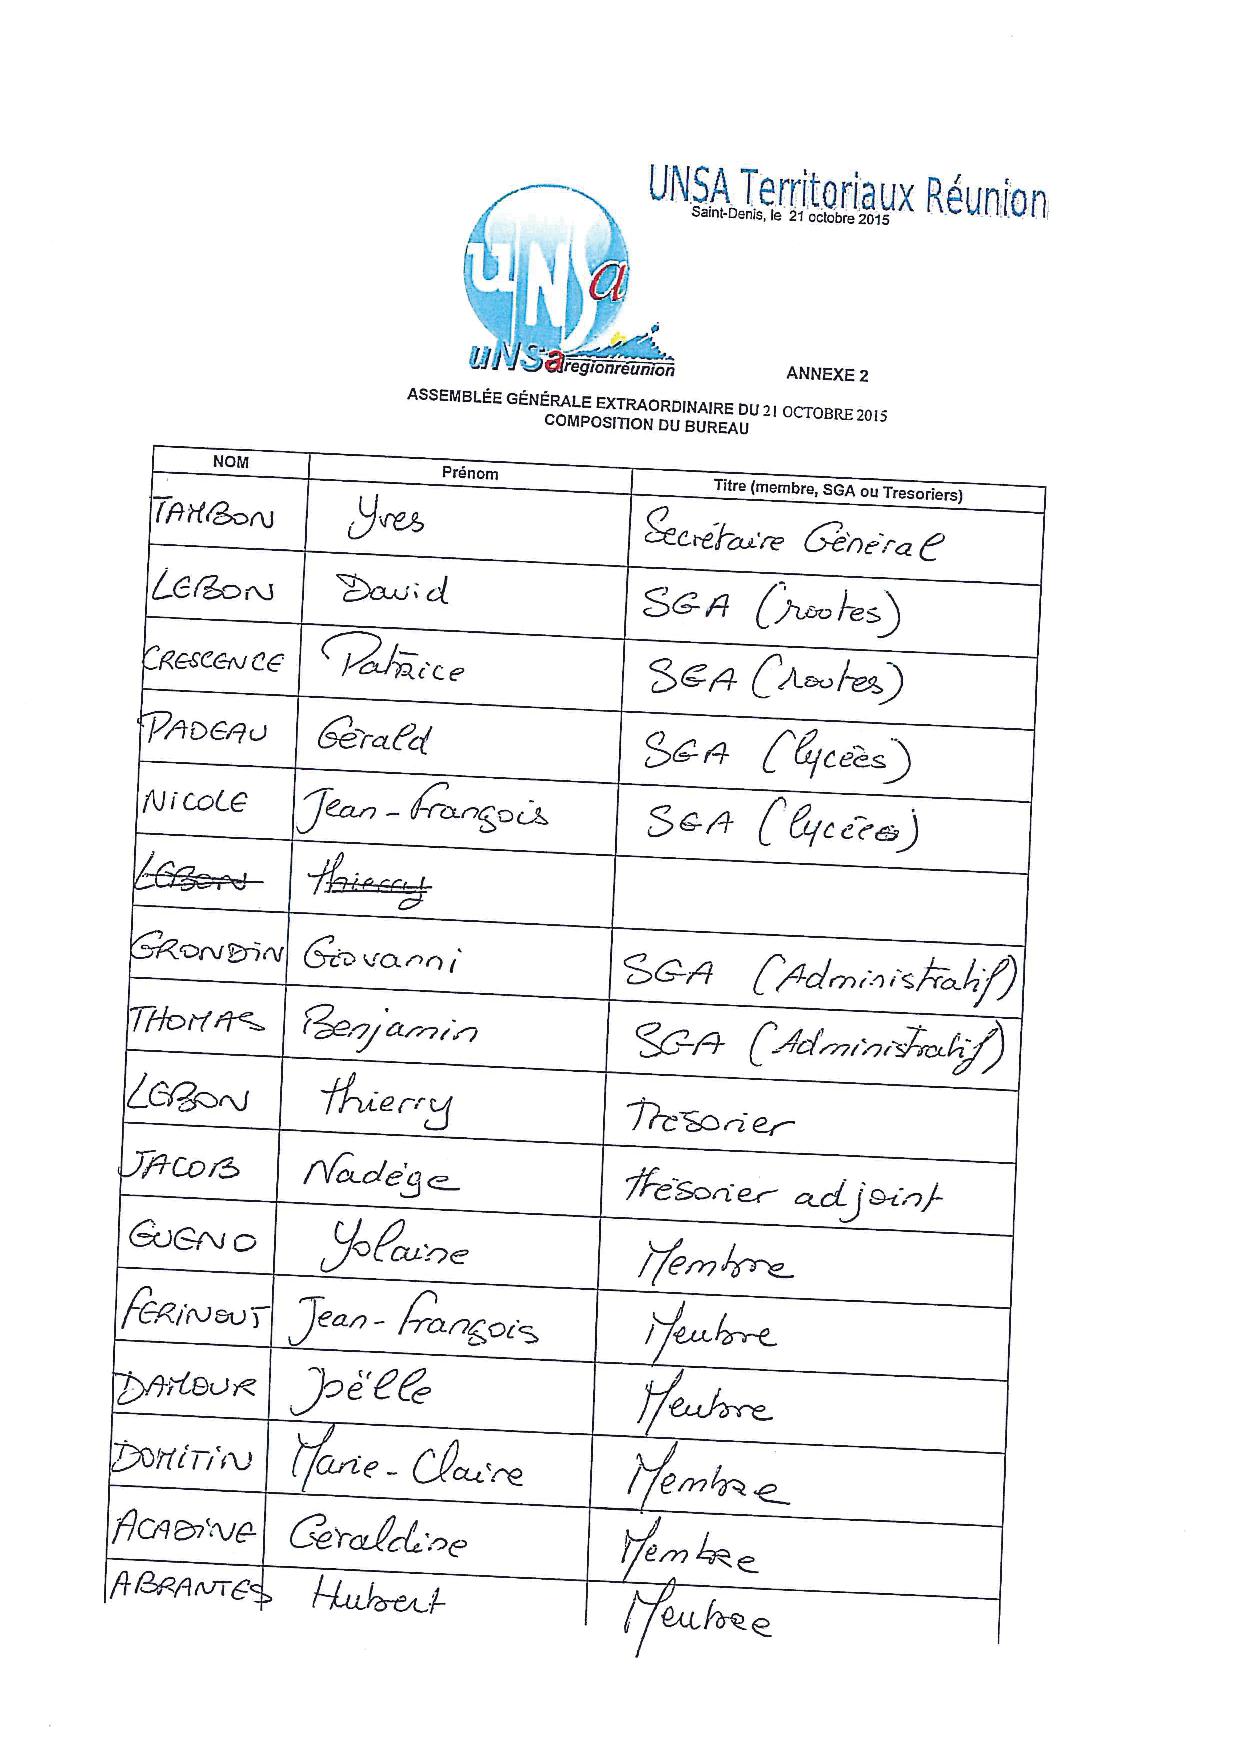 UNSA Territoriaux Réunion
Saint-Denis, le 21 octobre 2015
uNSa
uNSa regionréunion
ANNEXE 2
ASSEMBLÉE GÉNÉRALE EXTRAORDINAIRE DU 21 OCTOBRE 2015
COMPOSITION DU BUREAU
NOM Prénom Titre (membre, SGA ou Tresoriers)
TAMBON Yves Secrétaire Général
LEBON David SGA (routes)
CRESCENCE Patrice SGA (routes)
PADEAU Gérald SGA (lycées)
NICOLE Jean-François SGA (lycées)
LEBON Thierry
GRONDIN Giovanni SGA (Administratif)
THOMAS Benjamin SGA (Administratif)
LEBON Thierry Trésorier
JACOB Nadége trésorier adjoint
GUGNO Yolaine Membre
FERINOUT Jean-François Membre
DAMOUR Joëlle Membre
DOMITIN Marie-Claire Membre
ACADINE Géraldine Membre
ABRANTES Hubert Membre